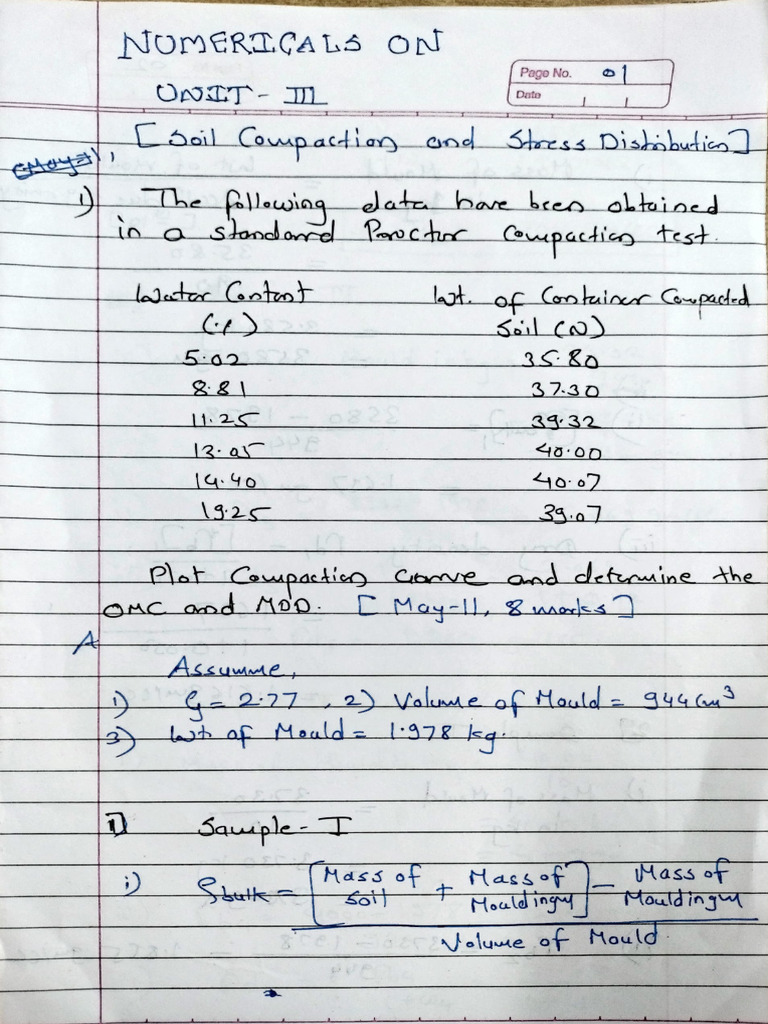 NUMERICALS ON
UNIT - III
Page No. 01
Date
[Soil Compaction and Stress Distribution]
1) The following data have been obtained
in a standard Proctor Compaction test.
Water Content Wt. of Container Compacted
(%) Soil (N)
5.02 35.80
8.81 37.30
11.25 39.32
13.05 40.00
14.40 40.07
19.25 39.07
Plot Compaction Curve and determine the
OMC and MDD. [May-11, 8 marks]
A
Assumme,
1) G = 2.77, 2) Volume of Mould = 944 cm³
3) Wt. of Mould = 1.978 kg.
1) Sample - I
i) ρbulk = [Mass of soil + Mass of Mould in gm] - Mass of Mould in gm
Volume of Mould